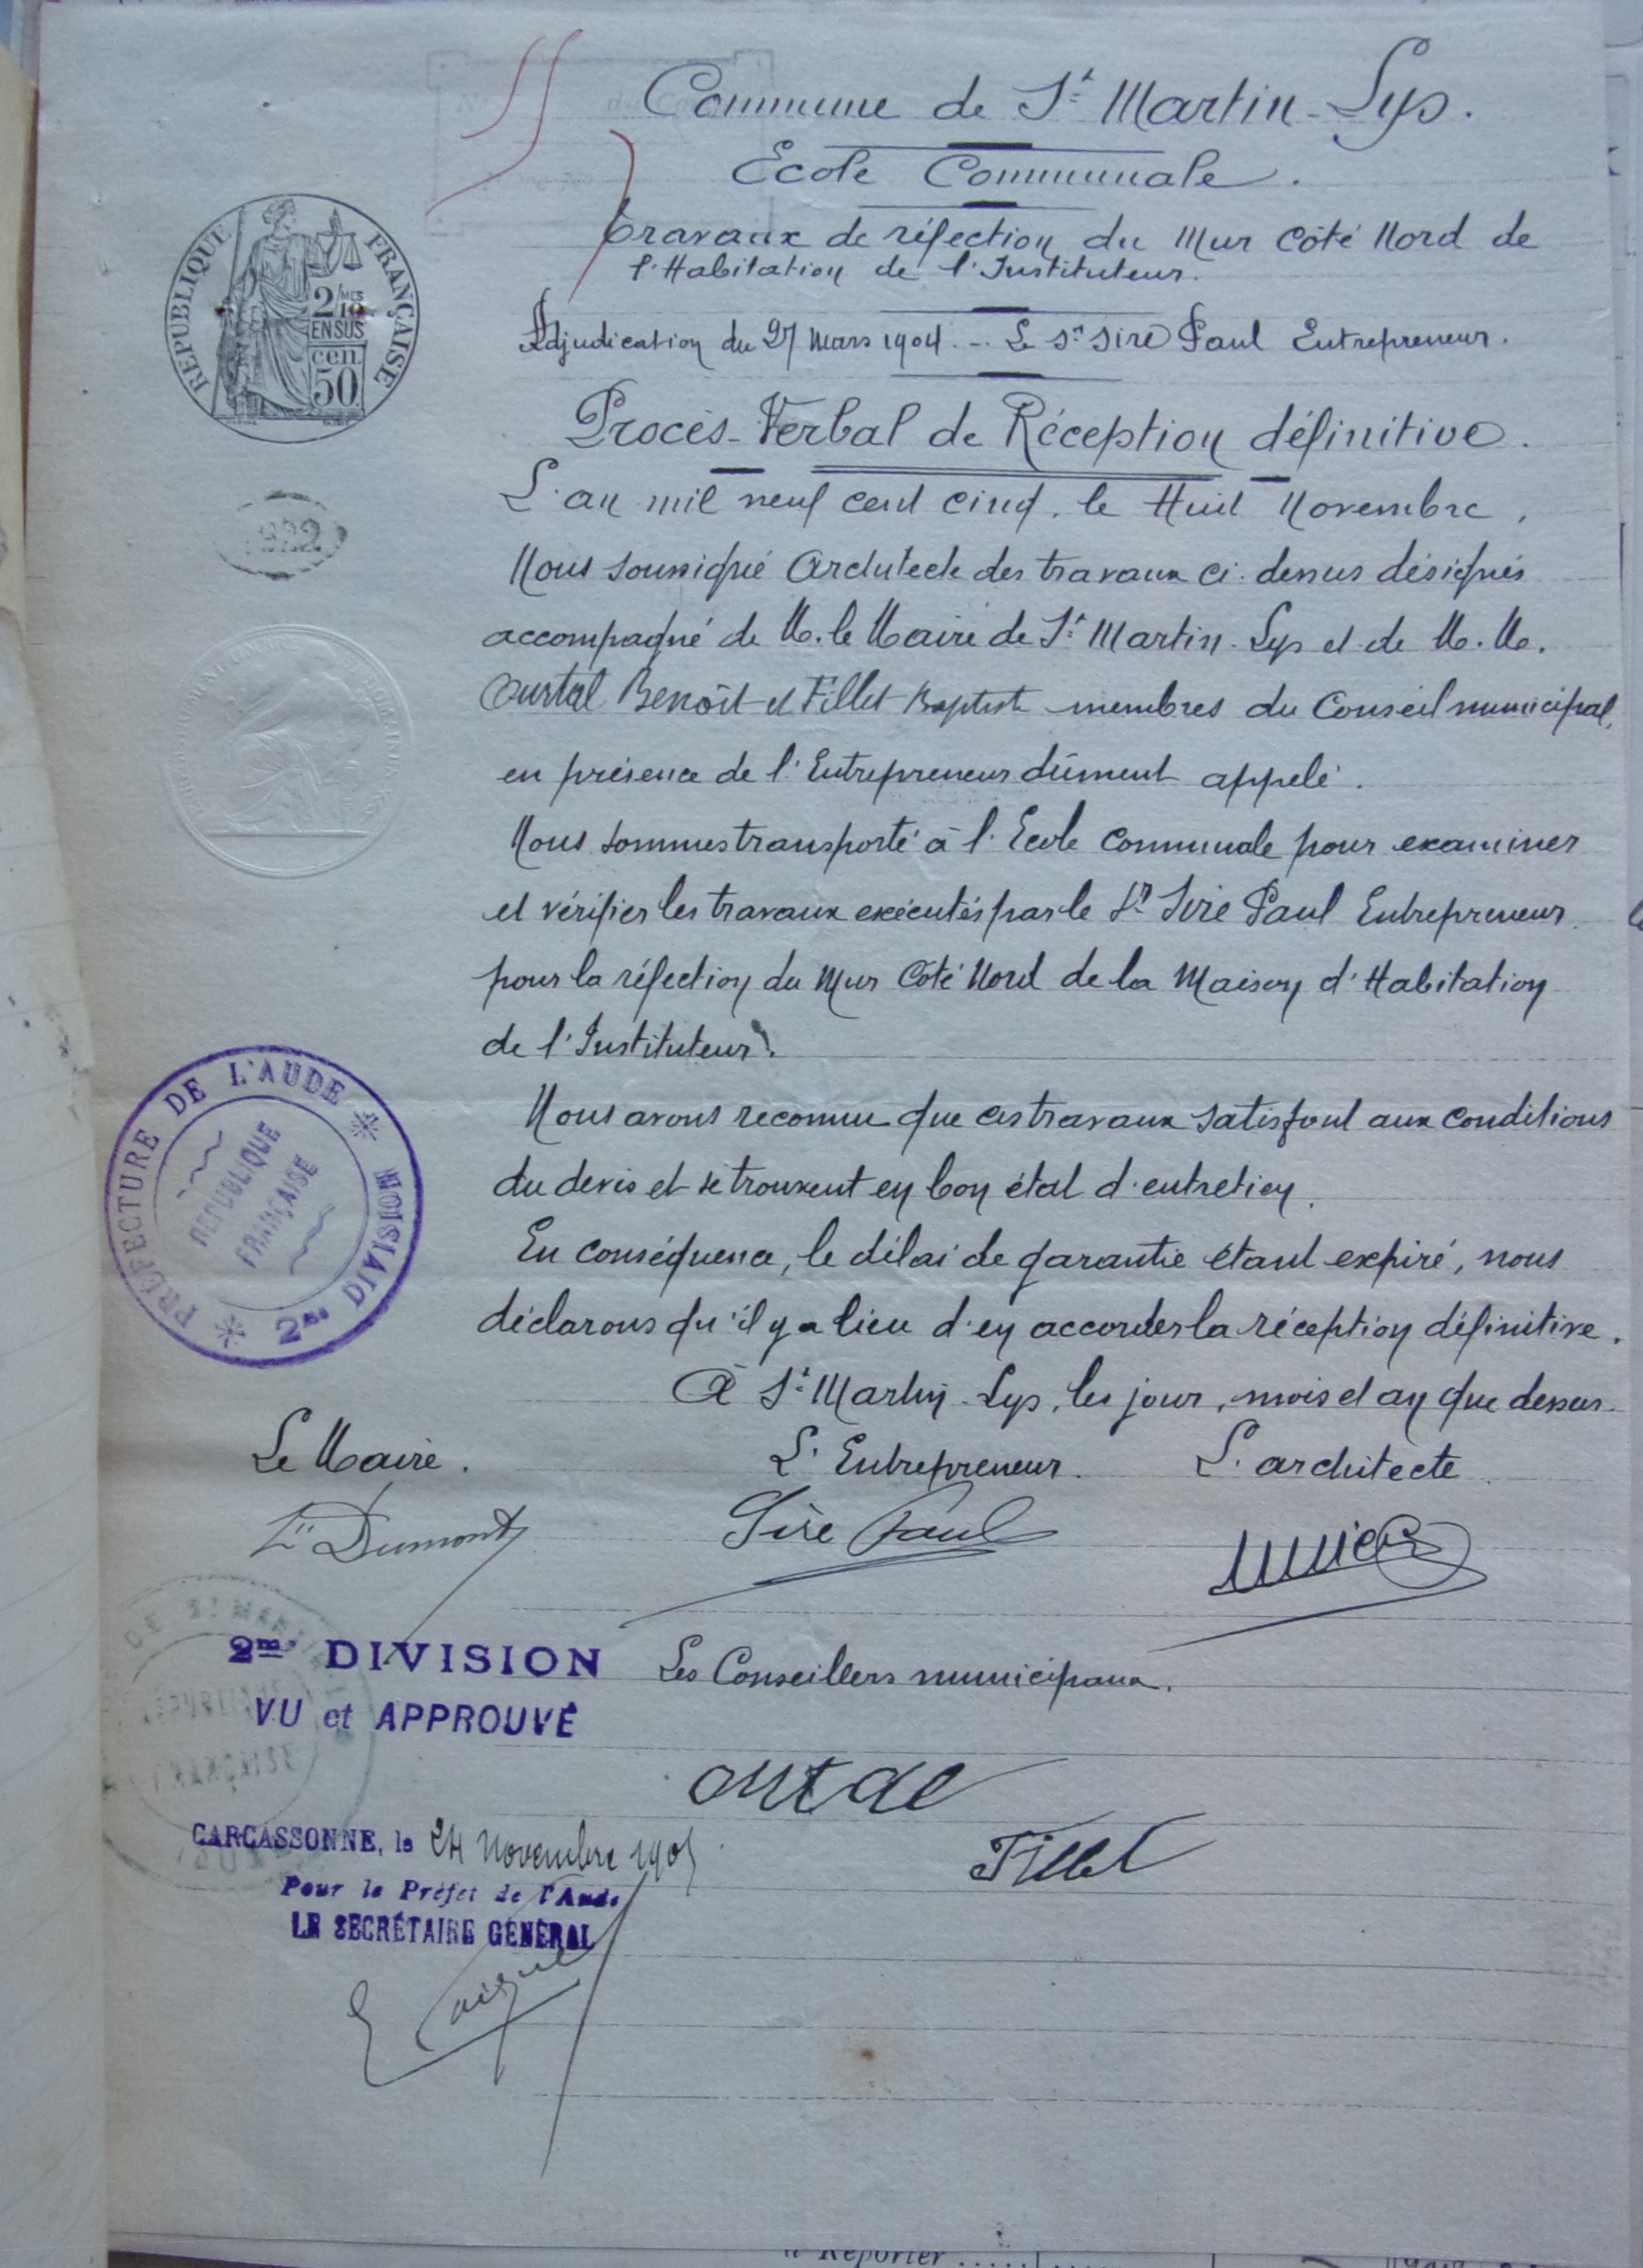 Commune de St Martin-Lys.
Ecole Communale.
Travaux de réfection du Mur Côté Nord de
l'Habitation de l'Instituteur.
Adjudication du 27 Mars 1904. - Le Sr Sire Paul Entrepreneur.
Procès-Verbal de Réception définitive.
L'an mil neuf cent cinq, le Huit Novembre,
Nous soussigné Architecte des travaux ci-dessus désignés
accompagné de M. le Maire de St Martin-Lys et de M.M.
Ourtal Benoît et Fillet Baptiste membres du Conseil municipal,
en présence de l'Entrepreneur dûment appelé.
Nous sommes transporté à l'Ecole communale pour examiner
et vérifier les travaux exécutés par le Sr Sire Paul Entrepreneur
pour la réfection du Mur Côté Nord de la Maison d'Habitation
de l'Instituteur.
Nous avons reconnu que ces travaux satisfont aux conditions
du devis et se trouvent en bon état d'entretien.
En conséquence, le délai de garantie étant expiré, nous
déclarons qu'il y a lieu d'en accorder la réception définitive.
A St Martin-Lys, les jour, mois et an que dessus.
Le Maire.
L'Entrepreneur.
L'architecte
Dumont
Sire Paul
Les Conseillers municipaux.
Ourtal
Fillet
RÉPUBLIQUE FRANÇAISE
2/10mes
EN SUS
50 cen
PRÉFECTURE DE L'AUDE * 2me DIVISION *
RÉPUBLIQUE
FRANÇAISE
DE ST MARTIN
2me DIVISION
VU et APPROUVÉ
CARCASSONNE, le 24 Novembre 1905
Pour le Préfet de l'Aude
LE SECRÉTAIRE GÉNÉRAL
à Reporter